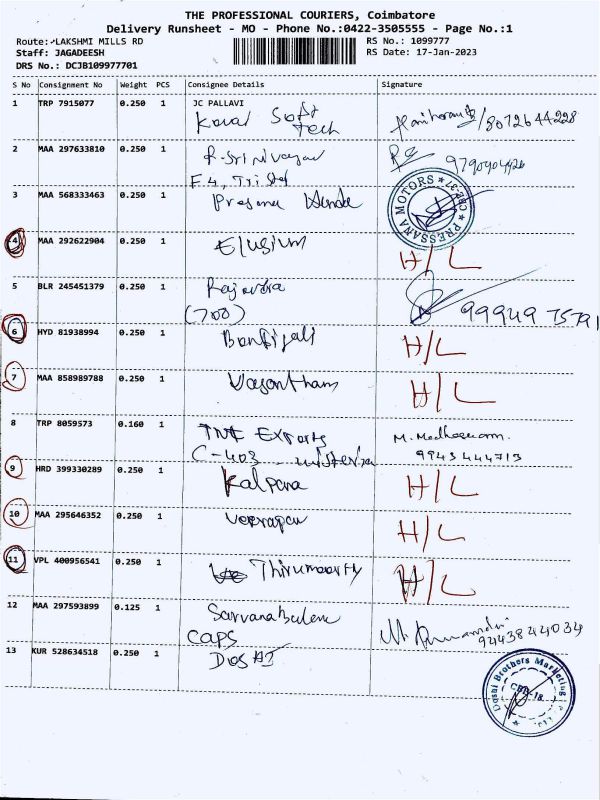 THE PROFESSIONAL COURIERS, Coimbatore
Delivery Runsheet - MO - Phone No.:0422-3505555 - Page No.:1
Route:-LAKSHMI MILLS RD
RS No.: 1099777
Staff: JAGADEESH
RS Date: 17-Jan-2023
DRS No.: DCJB109977701
S No Consignment No Weight PCS Consignee Details Signature
1 TRP 7915077 0.250 1 JC PALLAVI
Koval Soft Tech /8072644228
2 MAA 297633810 0.250 1 R. Srinivasan
F4, 9790904926
3 MAA 568333463 0.250 1 Prasana Honda PRESSANA MOTORS CBE-37
4 MAA 292622904 0.250 1 Elysium H/L
5 BLR 245451379 0.250 1 Rajendra
(700) 9994975791
6 HYD 81938994 0.250 1 H/L
7 MAA 858989788 0.250 1 Vasantham H/L
8 TRP 8059573 0.160 1 TNF Exports
C-403 9943444713
9 HRD 399330289 0.250 1 Kalpana H/L
10 MAA 295646352 0.250 1 H/L
11 VPL 400956541 0.250 1 Thirumoorty H/L
12 MAA 297593899 0.125 1
CAPS 9443844034
13 KUR 528634518 0.250 1 Doshi Brothers Marketing CBE-18